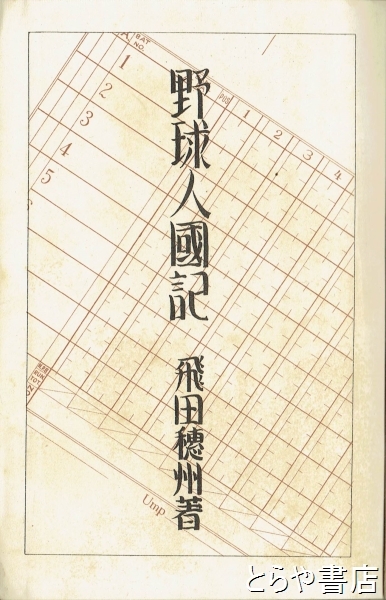 野球人國記
飛田穂州著
BAT
NO.
POS
1
2
3
4
1
2
3
4
5
RUN
TOT.
Ump
とらや書店